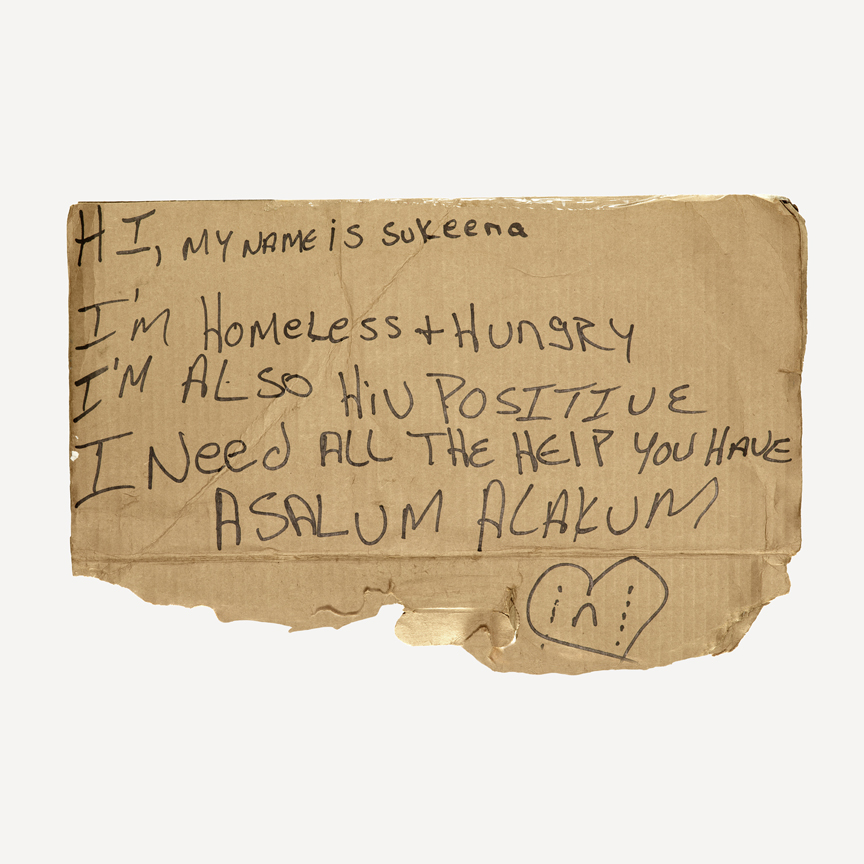 HI, MY NAME iS suKeena
I'M HOMeLess + HUngRy
I'M ALSO HiV POSITIVE
I Need ALL THE HElP YOU HAVE
ASALUM ALAKUM
in